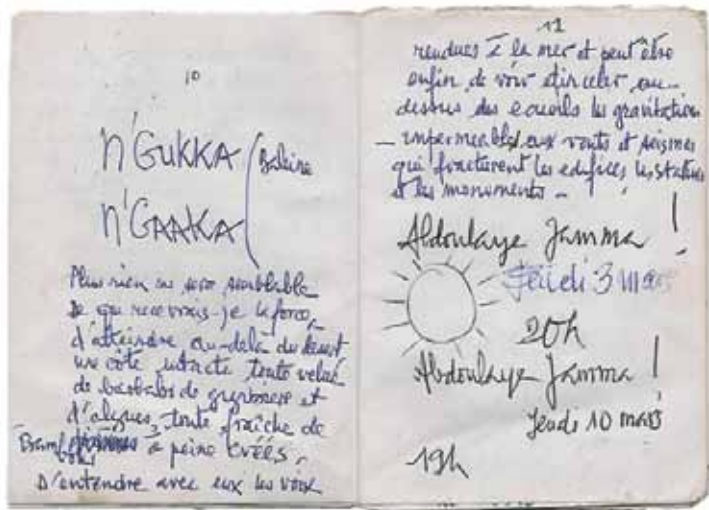 10
n'GUKKA
(Baleine
n'GAAKA
Plus rien ne sera semblable
De qui recevrais-je la force
d'atteindre au-delà du désert
une côte intacte toute velue
de baobabs de
et
d'algues, toute fraîche de
à peine créés.
D'entendre avec eux les voix
11
rendues à la mer et peut être
enfin de voir étinceler au-
dessus des écueils les gravitations
imperméables aux vents et séismes
qui fracturent les édifices les statues
et les monuments -
Abdoulaye Jamma !
Jeudi 3 mars
20h
Abdoulaye Jamma !
Jeudi 10 mars
19h